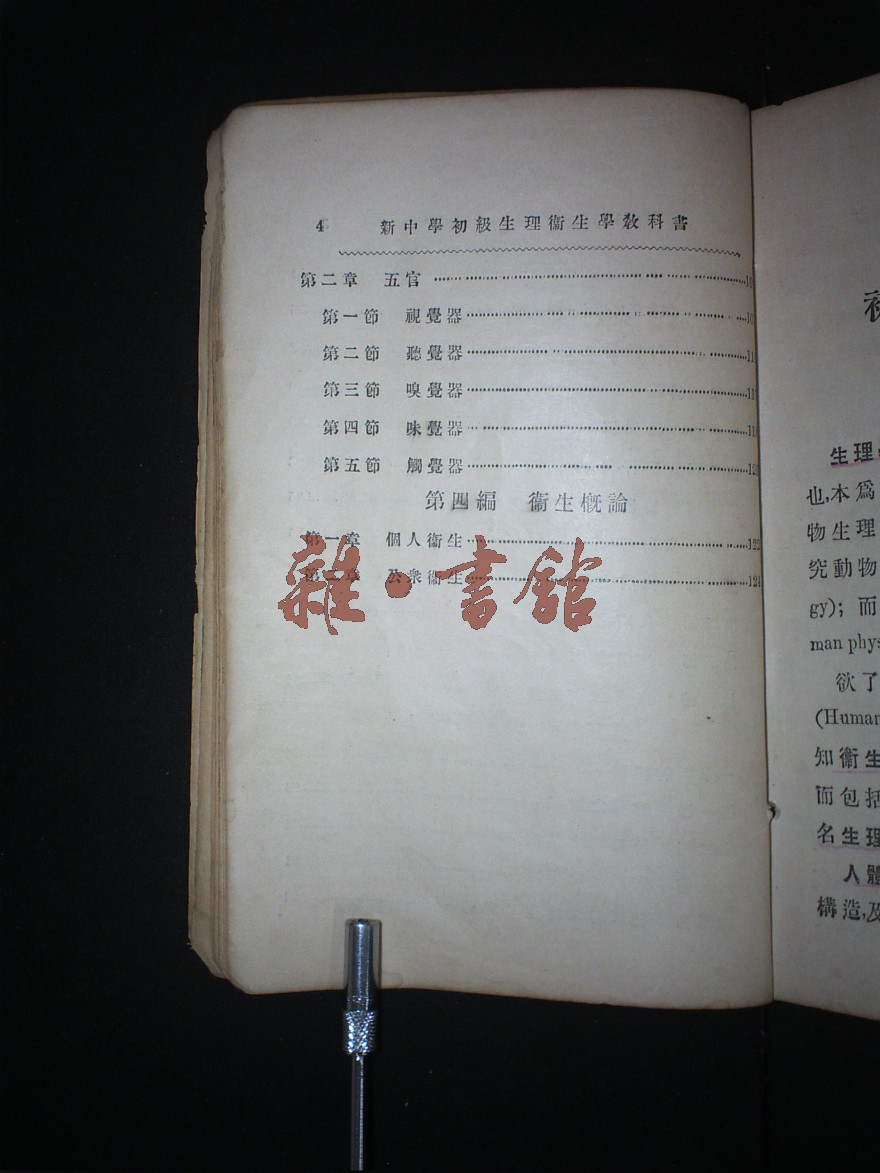 4 新中學初級生理衞生學敎科書
第二章 五官
第一節 視覺器
第二節 聽覺器
第三節 嗅覺器
第四節 味覺器
第五節 觸覺器
第四編 衞生槪論
第一章 個人衞生 122
第二章 公衆衞生 124
雜·書館
生理
也,本爲
物生理
究動物
gy); 而
man phys
欲了
(Human
知衞生
而包括
名生理
人體
構造,及